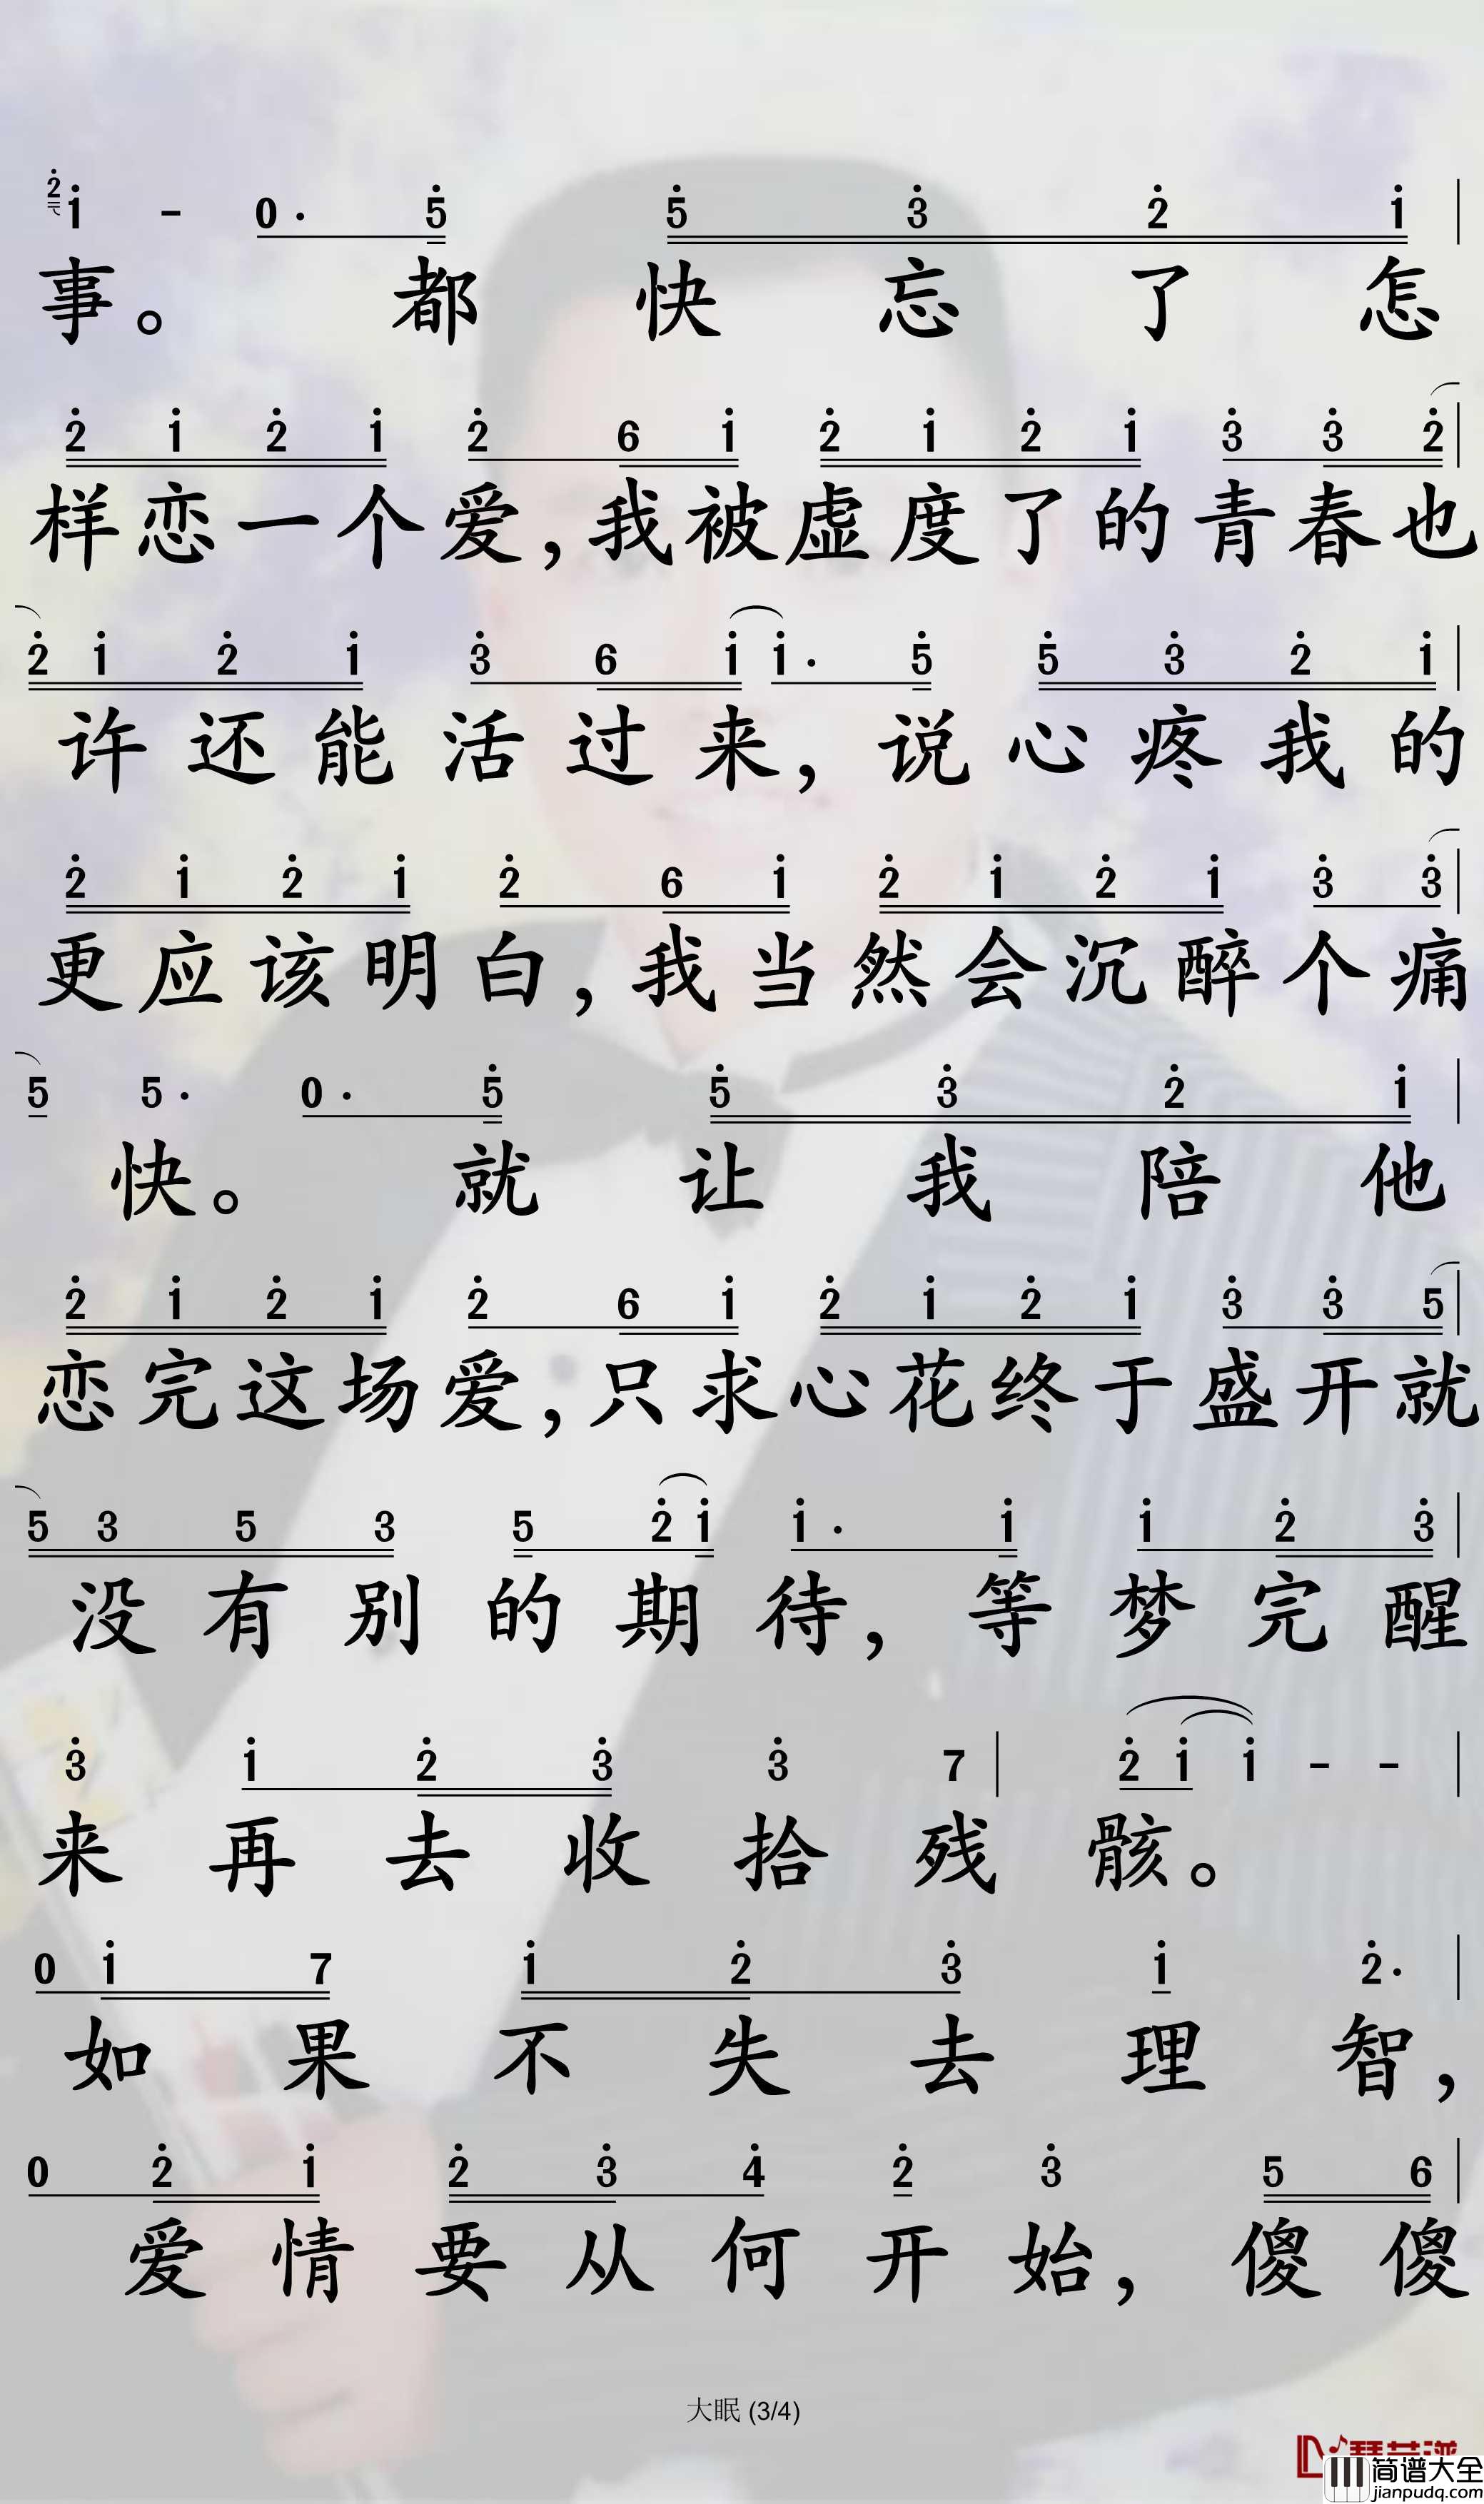 2 1 - 0 · 5 5 3 2 1
事。 都 快 忘 了 怎
2 1 2 1 2 6 1 2 1 2 1 3 3 2
样恋一个爱,我被虚度了的青春也
2 1 2 1 3 6 1 1 · 5 5 3 2 1
许 还 能 活 过 来, 说 心 疼 我 的
2 1 2 1 2 6 1 2 1 2 1 3 3
更应该明白,我当然会沉醉个痛
5 5 · 0 · 5 5 3 2 1
快。 就 让 我 陪 他
2 1 2 1 2 6 1 2 1 2 1 3 3 5
恋完这场爱,只求心花终于盛开就
5 3 5 3 5 2 1 1 · 1 1 2 3
没 有 别 的 期 待, 等 梦 完 醒
3 1 2 3 3 7 2 1 1 - -
来 再 去 收 拾 残 骸。
0 1 7 1 2 3 1 2 ·
如 果 不 失 去 理 智,
0 2 1 2 3 4 2 3 5 6
爱 情 要 从 何 开 始, 傻 傻
大眠 (3/4)
简谱大全
jianpudq.com